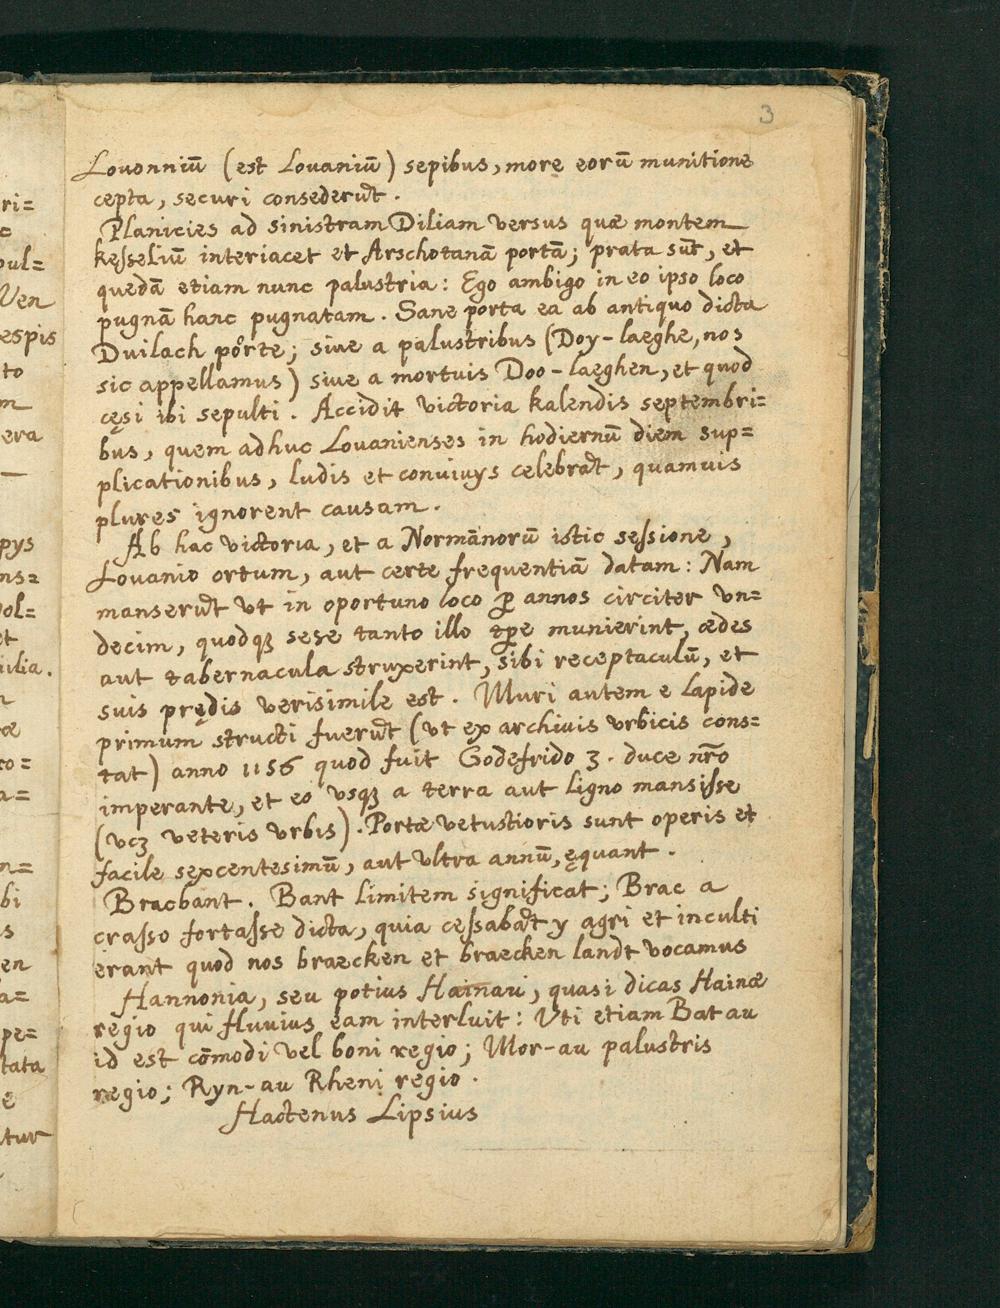 3
Louonniū (est Louaniū) sepibus, more eorū munitione
cepta, securi consederūt.
Planicies ad sinistram Diliam versus quæ montem
keſseliū interiacet et Arschotanā portā; prata sūt, et
quedā etiam nunc palustria: Ego ambigo in eo ipso loco
pugnā hanc pugnatam. Sane porta ea ab antiquo dicta
Duilach pŏrte; siue a palustribus (Doy-laeghe, nos
sic appellamus) siue a mortuis Doo-laeghen, et quod
cęsi ibi sepulti. Accidit victoria kalendis septembri=
bus, quem adhuc Louanienses in hodiernū diem sup=
plicationibus, ludis et conviuys celebrāt, quamuis
plures ignorent causam.
Ab hac victoria, et a Normānorū istic seſsione,
Louanio ortum, aut certe frequentiā datam: Nam
manserūt vt in oportuno loco ꝑ annos circiter vn=
decim, quodqꝫ sese tanto illo tꝑe munierint, ædes
aut tabernacula struxerint, sibi receptaculū, et
suis prędis verisimile est. Muri autem e lapide
primum structi fuerūt (vt ex archiuis vrbicis cons=
tat) anno 1156 quod fuit Godefrido 3. duce nr̄o
imperante, et eo vsqꝫ a terra aut ligno mansiſse
(vcꝫ veteris vrbis). Portæ vetustioris sunt operis et
facile sexcentesimū, aut vltra annū, ęquant.
Bracbant. Bant limitem significat; Brac a
craſso fortaſse dicta, quia ceſsabāt y agri et inculti
erant quod nos braecken et braecken landt vocamus
Hannonia, seu potius Hainau, quasi dicas Hainæ
regio qui fluuius eam interluit: Vti etiam Batau
id est cōmodi vel boni regio; Mor-au palustris
regio; Ryn-au Rheni regio.
Hactenus Lipsius